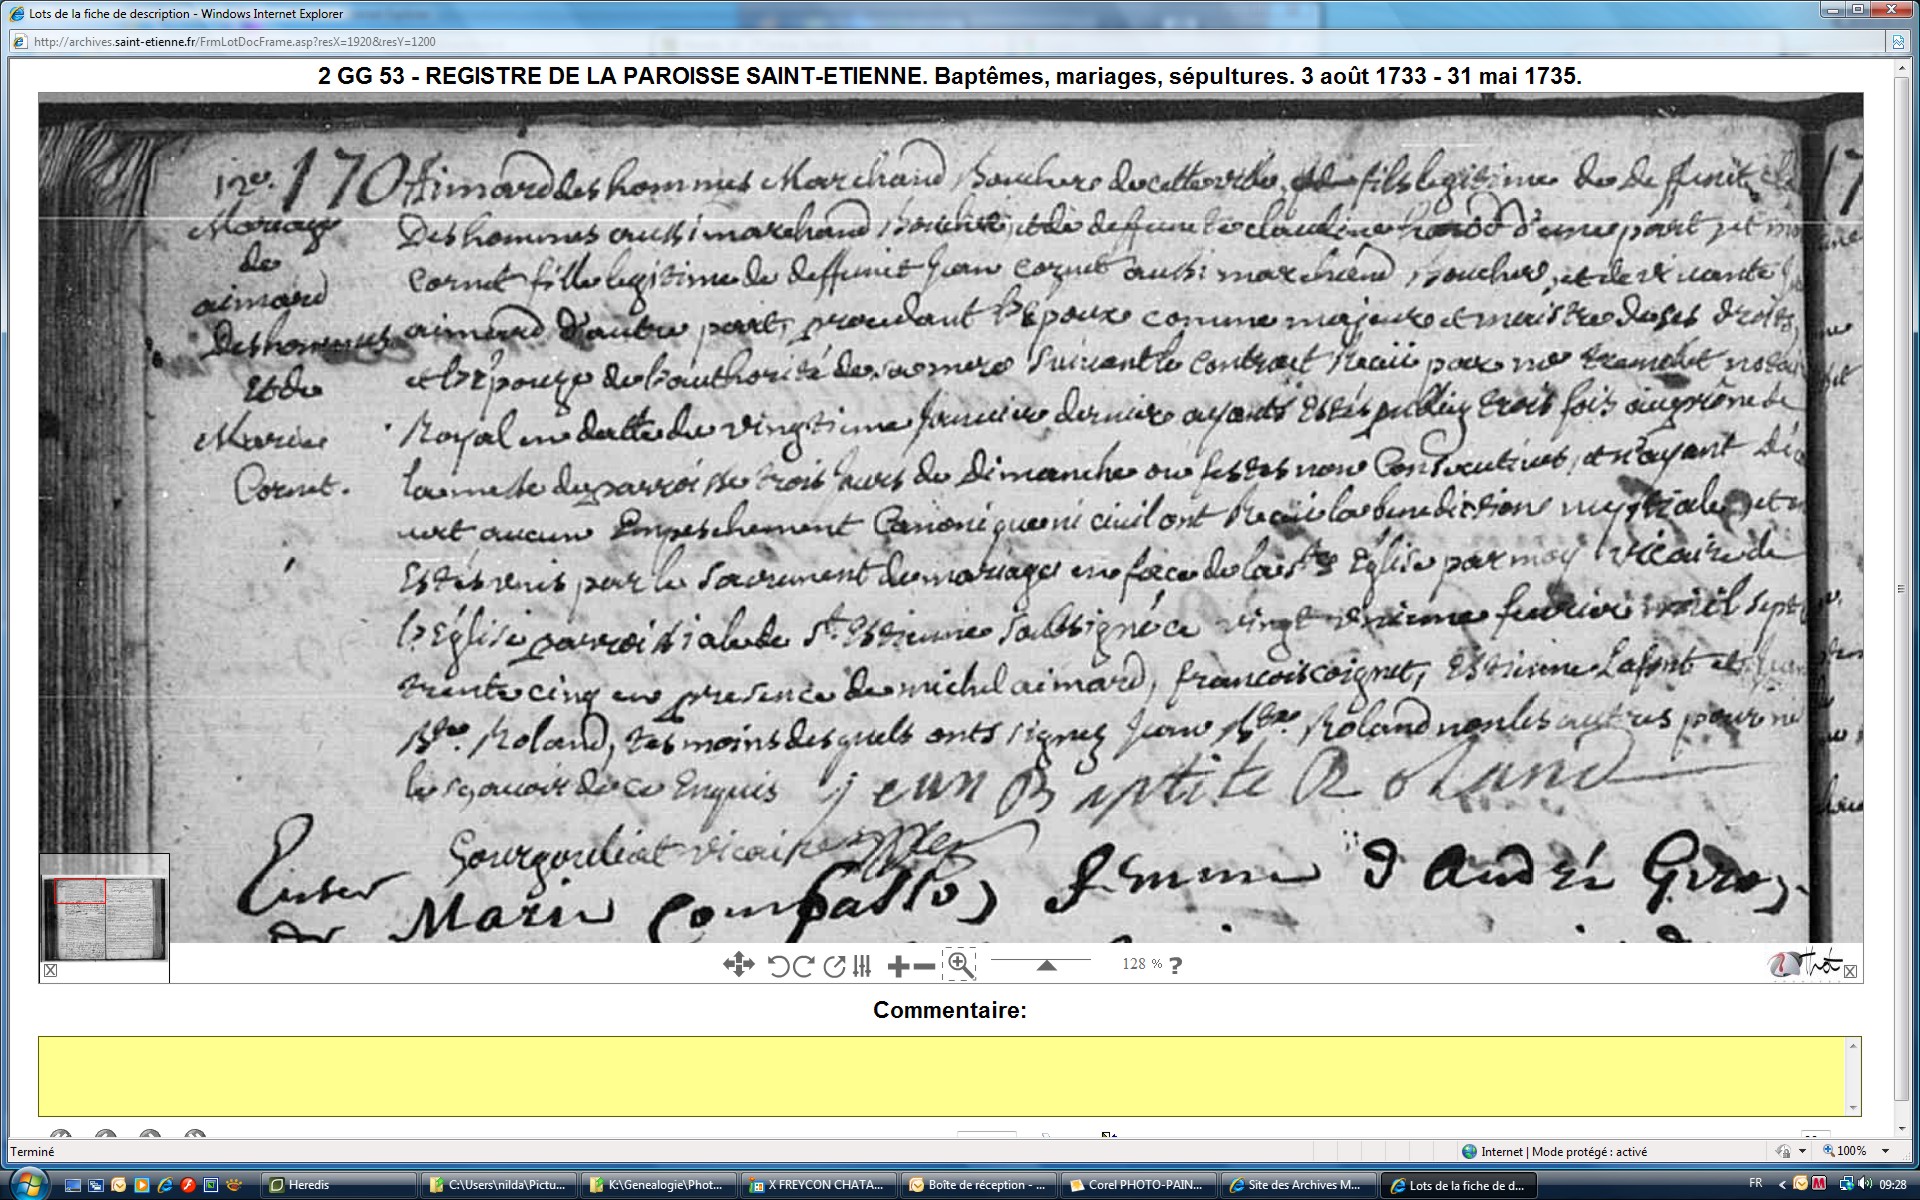 Lots de la fiche de description - Windows Internet Explorer
http://archives.saint-etienne.fr/FrmLotDocFrame.asp?resX=1920&resY=1200
2 GG 53 - REGISTRE DE LA PAROISSE SAINT-ETIENNE. Baptêmes, mariages, sépultures. 3 août 1733 - 31 mai 1735.
170
Mariage
de
aimard
Deshommes
Et de
Marie
Cornet.
Aimard deshommes Marchand Boucher de cette ville, fils legitime de deffunit
Deshommes aussi marchand Boucher, et de deffunte claudine d'une part, et
Cornet fille legitime de deffunit Jean Cornet aussi marchand Boucher, et de vivante
aimard d'autre part, procedant l'Epoux comme majeur et maistre de ses droits,
et l'Epouze de l'authorité de sa mere suivant le contract Receü par me tramolet
Royal en datte du vingtieme Janvier dernier ayants Estés publiez trois fois au prône de
la messe de parroisse trois Jours de Dimanche ou festes non Consecutives, et n'ayant
vert aucun Empeschement Canonique ni civil ont Receu la benediction nuptiale, et
Estés unis par le Sacrement de mariage en face de la ste Eglise par moy vicaire de
l'Eglise parroissiale de St Estienne soussigné ce vingt unieme fevrier mil sept
trente cinq en presence de michel aimard, francois coignet, Estienne Lafont et
Bte. Roland, tesmoins desquels onts signez Jean Bte. Roland non les autres pour ne
le sçavoir de ce Enquis jean Baptite Roland
Gourgouliat vicaire
Marie Compassos femme d'André
128 % ?
Commentaire:
Terminé
Internet | Mode protégé : activé
100%
Heredis
C:\Users\nilda\Pictu...
K:\Genealogie\Phot...
X FREYCON CHATA...
Boîte de réception - ...
Corel PHOTO-PAIN...
Site des Archives M...
Lots de la fiche de d...
FR
09:28